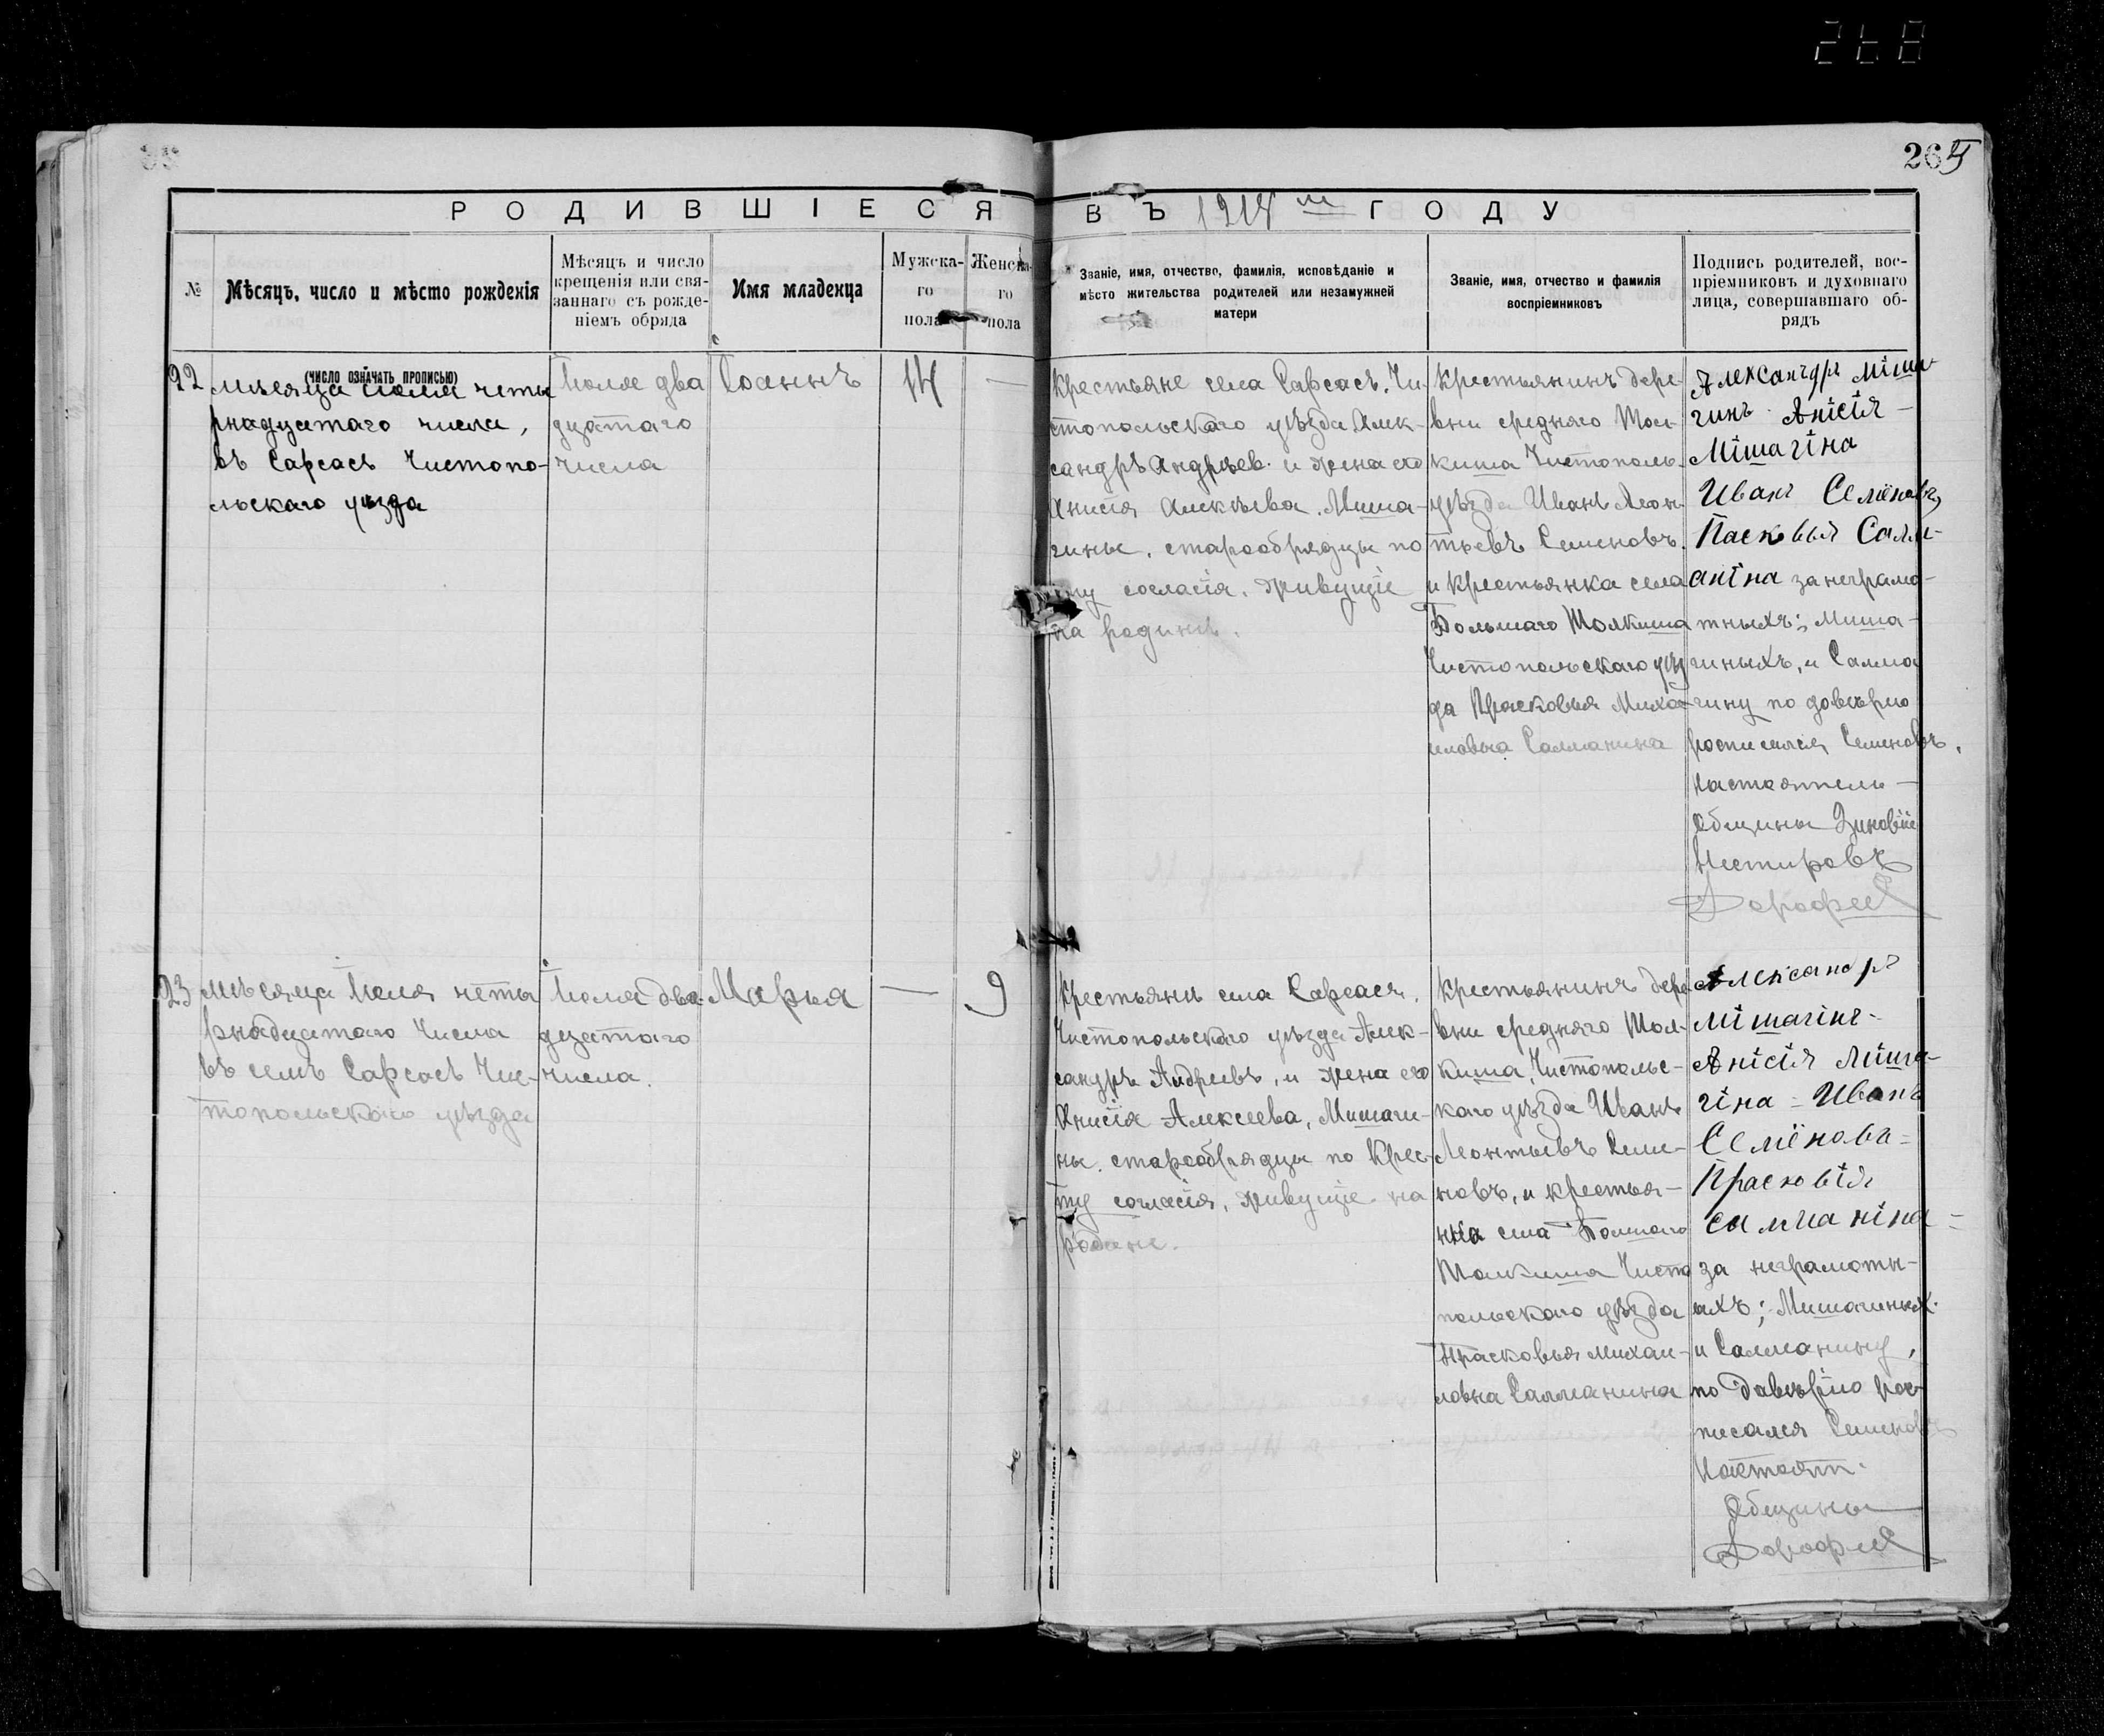 268
265
РОДИВШІЕСЯ ВЪ 1914 м ГОДУ
№
Мѣсяцъ, число и мѣсто рожденія
Мѣсяцъ и число
крещенія или свя-
заннаго съ рожде-
ніемъ обряда
Имя младенца
Мужска-
го
пола
Женска-
го
пола
Званіе, имя, отчество, фамилія, исповѣданіе и
мѣсто жительства родителей или незамужней
матери
Званіе, имя, отчество и фамилія
воспріемниковъ
Подпись родителей, вос-
пріемниковъ и духовнаго
лица, совершавшаго об-
рядъ
(число означать прописью)
22
мѣсяца Іюля четы
рнадцатаго числа,
въ Сарсасъ Чистопо-
льскаго уѣзда
Іюля два
дцатаго
числа
Іоаннъ
14
—
Крестьяне села Сарсасъ. Чи-
стопольскаго уѣзда Алек-
сандръ Андрѣев. и жена его
Анисія Алексѣева. Миша-
гины, старообрядцы по
ту согласія. живущіе
на родинѣ.
Крестьянинъ дере-
вни средняго Тол-
киша Чистополь-
уѣзда Иванъ Леон-
тьевъ Семеновъ.
и крестьянка села
Большаго Толкиша
Чистопольскаго уѣз
да Прасковья Миха-
иловна Салманина
Александръ Міша-
гинъ. Анісія -
Мішагіна
Иванъ Семёновъ
Пасковья Салм-
аніна за неграмо-
тныхъ; Миша-
гиныхъ, и Салма
нину по довѣрію
росписался Семеновъ.
Настоятель -
Общины Зиновій
Нестировъ
Дорофей
23
мѣсяца Іюля четы
рнадцатаго Числа
въ селѣ Сарсасъ Чис-
топольскаго уѣзда
Іюля два-
дцатаго
числа.
Марья
—
9
Крестьяни села Сарсасъ.
Чистопольскаго уѣзда Алек-
сандръ Андреевъ, и жена его
Анисія Алексеева, Мишаги-
ны. старообрядцы по Крес-
ту согласія, живущіе на
родине.
Крестьянинъ дере
вни средняго Тол-
киша, Чистопольс-
каго уѣзда Иванъ
Леонтьевъ Семе-
новъ, и крестья-
нка села Болшаго
Толкиша Чисто
польскаго уѣзда
Прасковья Михаи-
ловна Салманина
Александръ
Мішагінъ -
Анісія Міша-
гіна - Иванъ
Семёновъ -
Прасковія
салманіна -
за неграмотн-
ыхъ; Мишагиных.
и Салманину,
по давѣрію рос-
писался Семеновъ
Настоят.
Общины
Дорофей